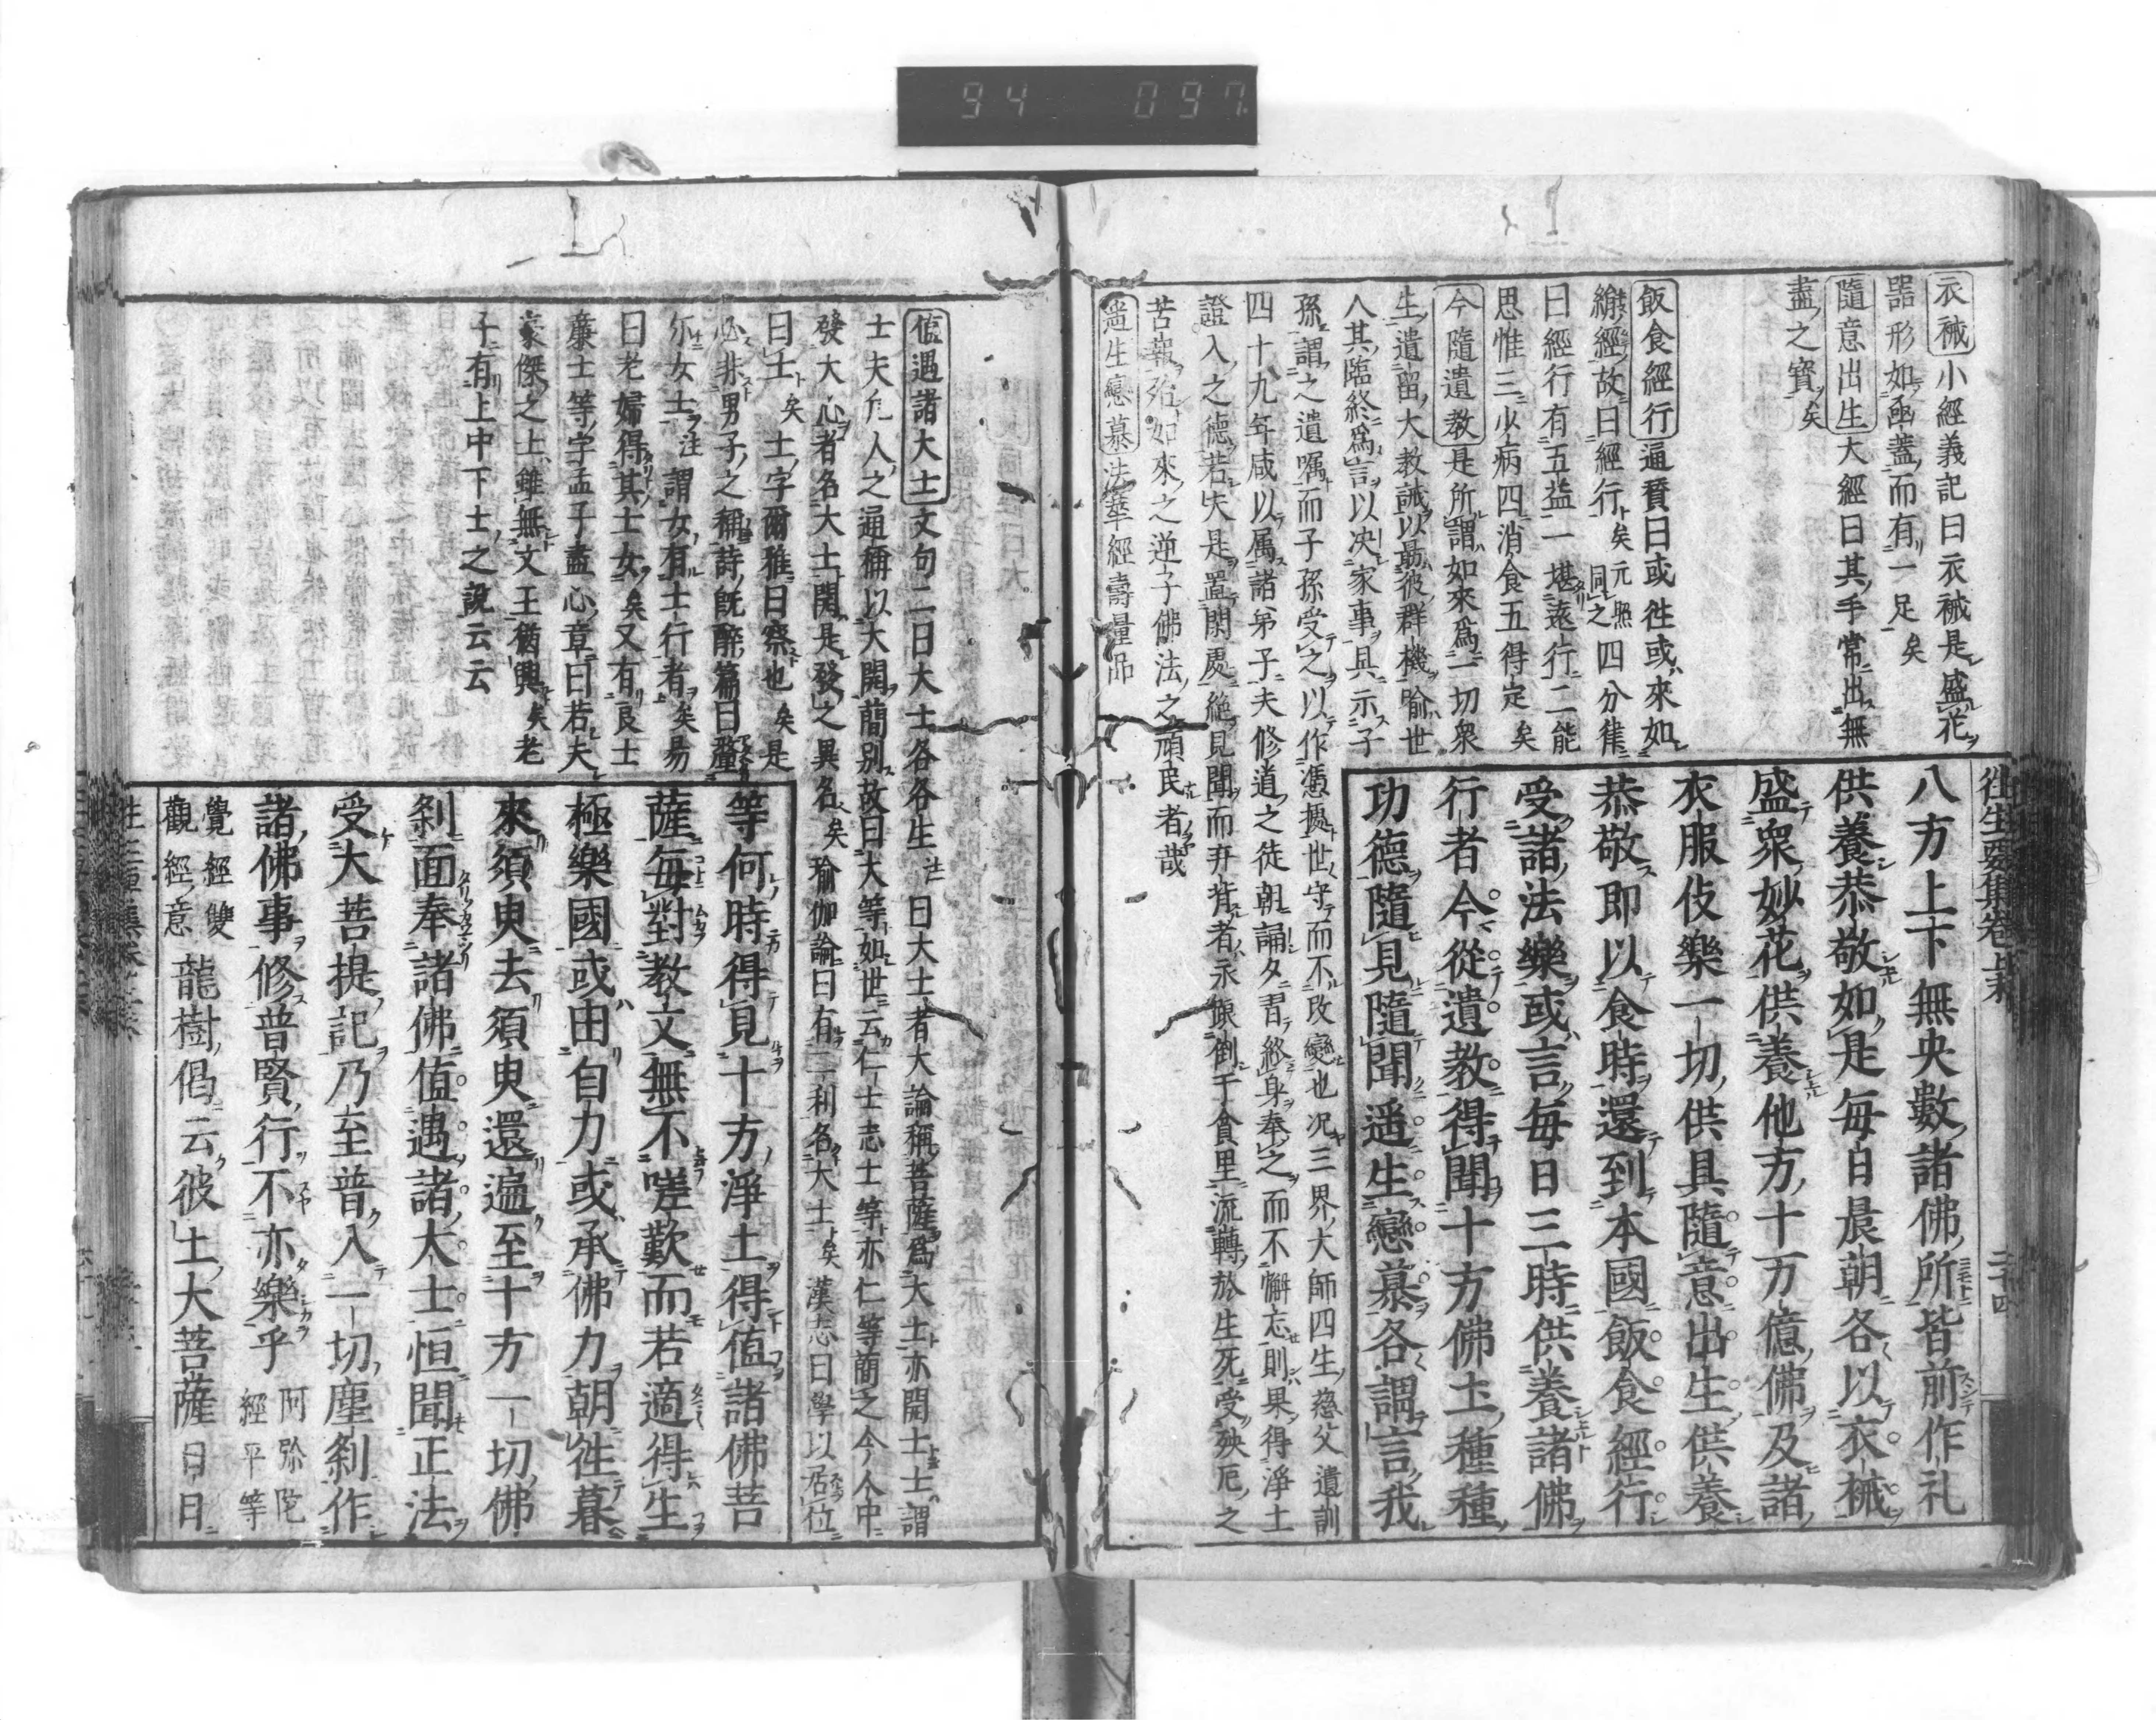 94 097
往生要集卷上末
二十四
衣裓小經義記曰衣裓是盛花
器形如凾蓋而有一足矣
隨意出生大經曰其手常出無
盡之寶矣
飯食經行通賛曰或往或來如
經故曰經行矣元照同之四分
曰經行有五益一堪遠行二能
思惟三少病四消食五得定矣
今隨遺教是所謂如來爲一切衆
生遺留大教誡以最彼群機喻世
人其臨終爲言以决家事具示子
孫謂之遺囑而子孫受之以作憑據世守而不改變也况三界大師四生慈父遺訓
四十九年咸以属諸弟子夫修道之徒朝誦夕習終身奉之而不懈忘則果得淨土
證入之德若夫是置閑處絶見聞而弃背者永顛倒于貪里流轉於生死受殃厄之
苦報殆如來之逆子佛法之頑民者哉
生戀慕法華經壽量品
八方上下無央數諸佛所皆前作礼
供養恭敬如是毎日晨朝各以衣裓
盛衆妙花供養他方十万億佛及諸
衣服伎樂一切供具隨意出生供養
恭敬即以食時還到本國飯食經行
受諸法樂或言毎日三時供養諸佛
行者今從遺教得聞十方佛土種種
功德隨見隨聞遥生戀慕各謂言我
値遇諸大士文句二曰大士各各生註曰大士者大論稱菩薩爲大士亦開士士謂
士夫凡人之通稱以大開蕳別故曰大等如世云仁士志士等亦仁等蕳之今人中
發大心者名大士開是發之異名矣瑜伽論曰有二利名大士矣漢志曰學以居位
曰士矣士字爾雅曰察也矣是
必非男子之稱詩既醉篇曰釐
尓女士注謂女有士行者矣易
曰老婦得其士女矣又有良士
廉士等字孟子盡心章曰若夫
豪傑之士雖無文王猶興矣老
子有上中下士之說云云
等何時得見十方淨土得値諸佛菩
薩毎對教文無不嗟歎而若適得生
極樂國或由自力或承佛力朝往暮
來須臾去須臾還遍至十方一切佛
刹面奉諸佛値遇諸大士恒聞正法
受大菩提記乃至普入一切塵刹作
諸佛事修普賢行不亦樂乎阿弥陀經平等
覺經雙觀經意龍樹偈云彼土大菩薩日日